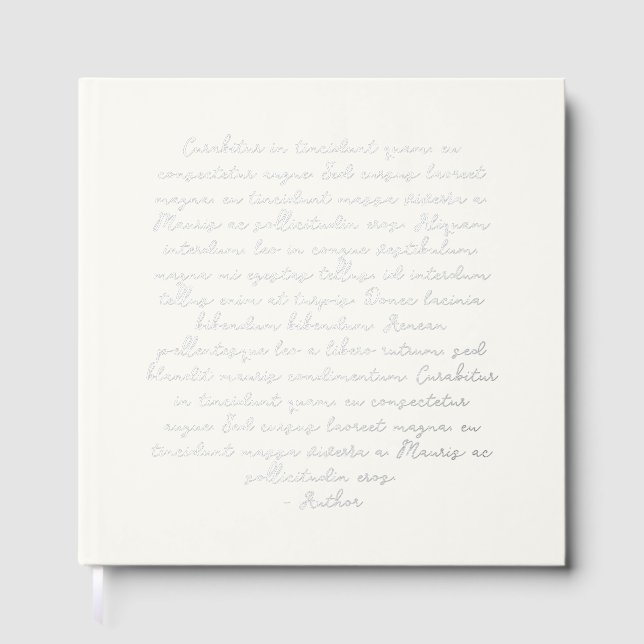 Curabitur in tincidunt quam, eu
consectetur augue. Sed cursus laoreet
magna, eu tincidunt massa viverra a.
Mauris ac sollicitudin eros. Aliquam
interdum, leo in congue vestibulum,
magna mi egestas tellus, id interdum
tellus enim at turpis. Donec lacinia
bibendum bibendum. Aenean
pellentesque leo a libero rutrum, sed
blandit mauris condimentum. Curabitur
in tincidunt quam, eu consectetur
augue. Sed cursus laoreet magna, eu
tincidunt massa viverra a. Mauris ac
sollicitudin eros.
- Author